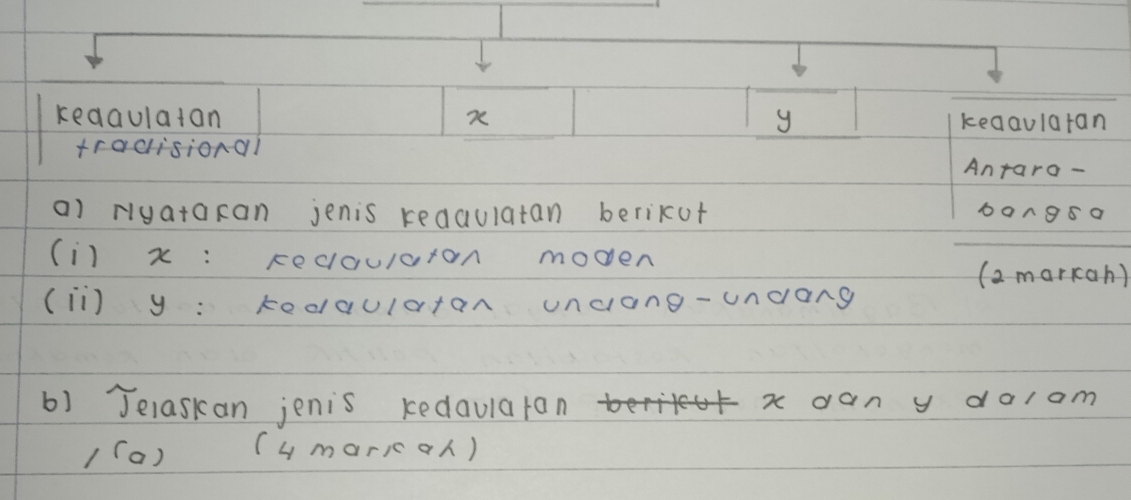 kedaulatan
tradisional
x
y
kedaulatan
Antara-
bangsa
a) Nyatakan jenis kedaulatan berikut
(i) x : kedaulatan moden
(ii) y : kedaulatan undang-undang
(2 markah)
b) Jelaskan jenis kedaulatan berikut x dan y dalam
1(a) (4 markah)